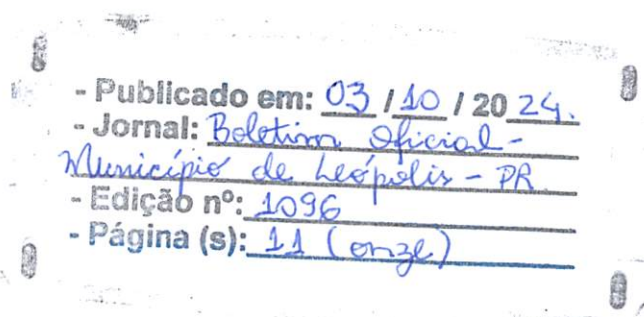 - Publicado em: 03 / 10 / 20 24.
- Jornal: Boletim Oficial -
Município de Leópolis - PR
- Edição nº: 1096
- Página (s): 11 (onze)